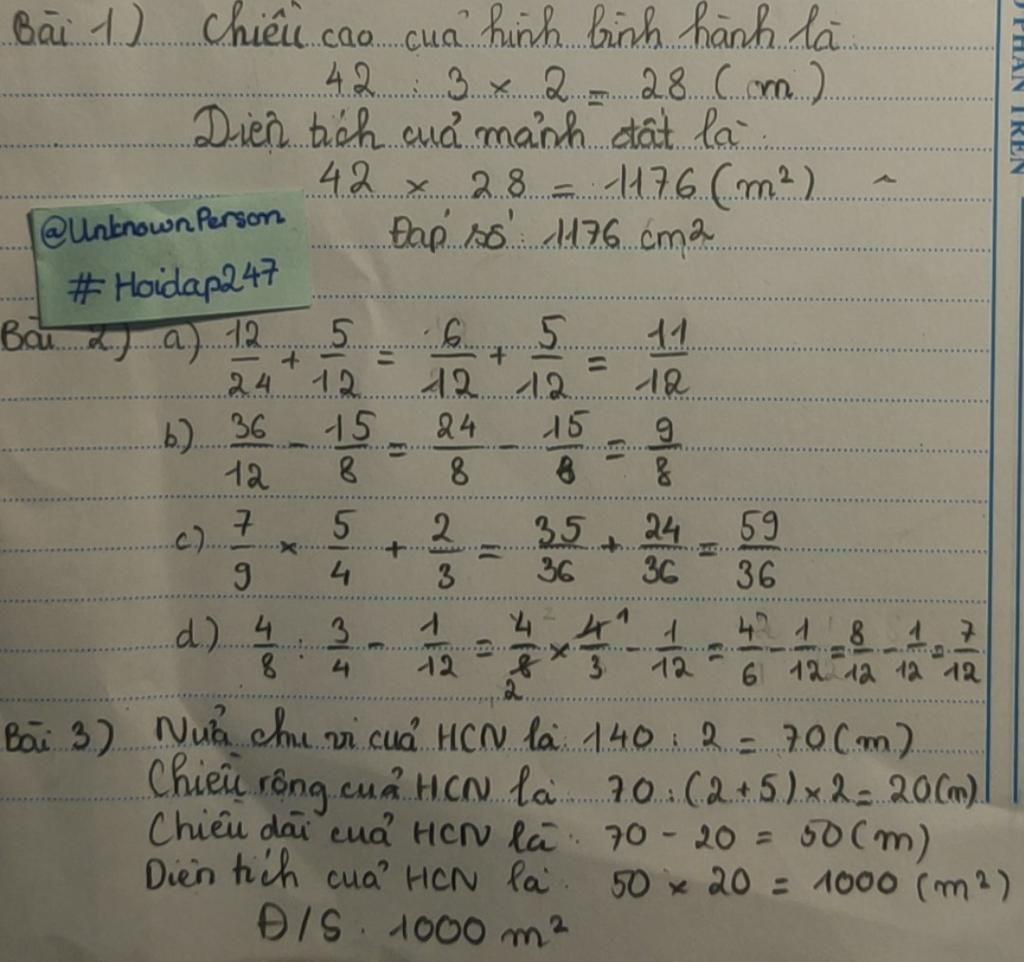 Bài 1) Chiều cao của hình bình hành là:
42 : 3 × 2 = 28 (m)
Diện tích của mảnh đất là:
42 × 28 = 1176 (m²)
Đáp số: 1176 cm2
@UnknownPerson
#Hoidap247
Bài 2) a) 12/24 + 5/12 = 6/12 + 5/12 = 11/12
b) 36/12 - 15/8 = 24/8 - 15/8 = 9/8
c) 7/9 × 5/4 + 2/3 = 35/36 + 24/36 = 59/36
d) 4/8 : 3/4 - 1/12 = 4/8 2 × 4/3 1 - 1/12 = 4/6 - 1/12 = 8/12 - 1/12 = 7/12
Bài 3) Nửa chu vi của HCN là: 140 : 2 = 70 (m)
Chiều rộng của HCN là: 70 : (2+5) × 2 = 20 (m)
Chiều dài của HCN là: 70 - 20 = 50 (m)
Diện tích của HCN là: 50 × 20 = 1000 (m²)
Đ/S: 1000 m²
PHAN TREN